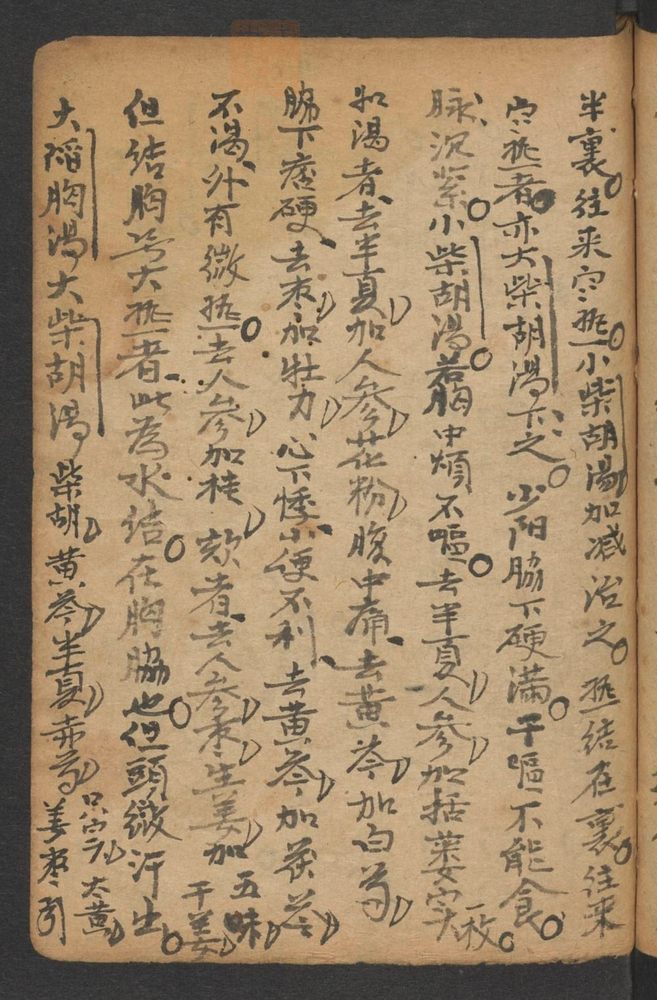 半裏往来寒热小柴胡湯加减治之热结在裏往来
寒热者亦大柴胡湯下之少阳脇下硬满干嘔不能食
脉沉紧小柴胡湯若胸中煩不嘔去半夏人参加括蒌实一枚
如渴者去半夏加人参花粉腹中痛去黄芩加白芍
脇下痞硬去枣加牡力心下悸小便不利去黄芩加茯苓
不渴外有微热去人参加桂欬者去人参枣生姜加五味干姜
但结胸无大热者此為水结在胸脇也但頭微汗出
大陷胸湯大柴胡湯柴胡黄芩半夏赤芍只实大黄姜枣引